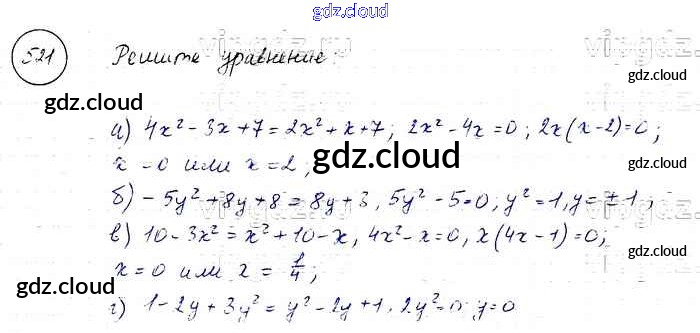 gdz.cloud
521 Решите уравнение:
gdz.cloud
gdz.cloud
а) 4x² - 3x + 7 = 2x² + x + 7; 2x² - 4x = 0; 2x(x - 2) = 0;
x = 0 или x = 2;
gdz.cloud
б) -5y² + 8y + 8 = 8y + 3, 5y² - 5 = 0; y² = 1, y = ± 1;
в) 10 - 3x² = x² + 10 - x, 4x² - x = 0, x(4x - 1) = 0;
x = 0 или x = 1/4;
gdz.cloud
gdz.cloud
г) 1 - 2y + 3y² = y² - 2y + 1, 2y² = 0 y = 0